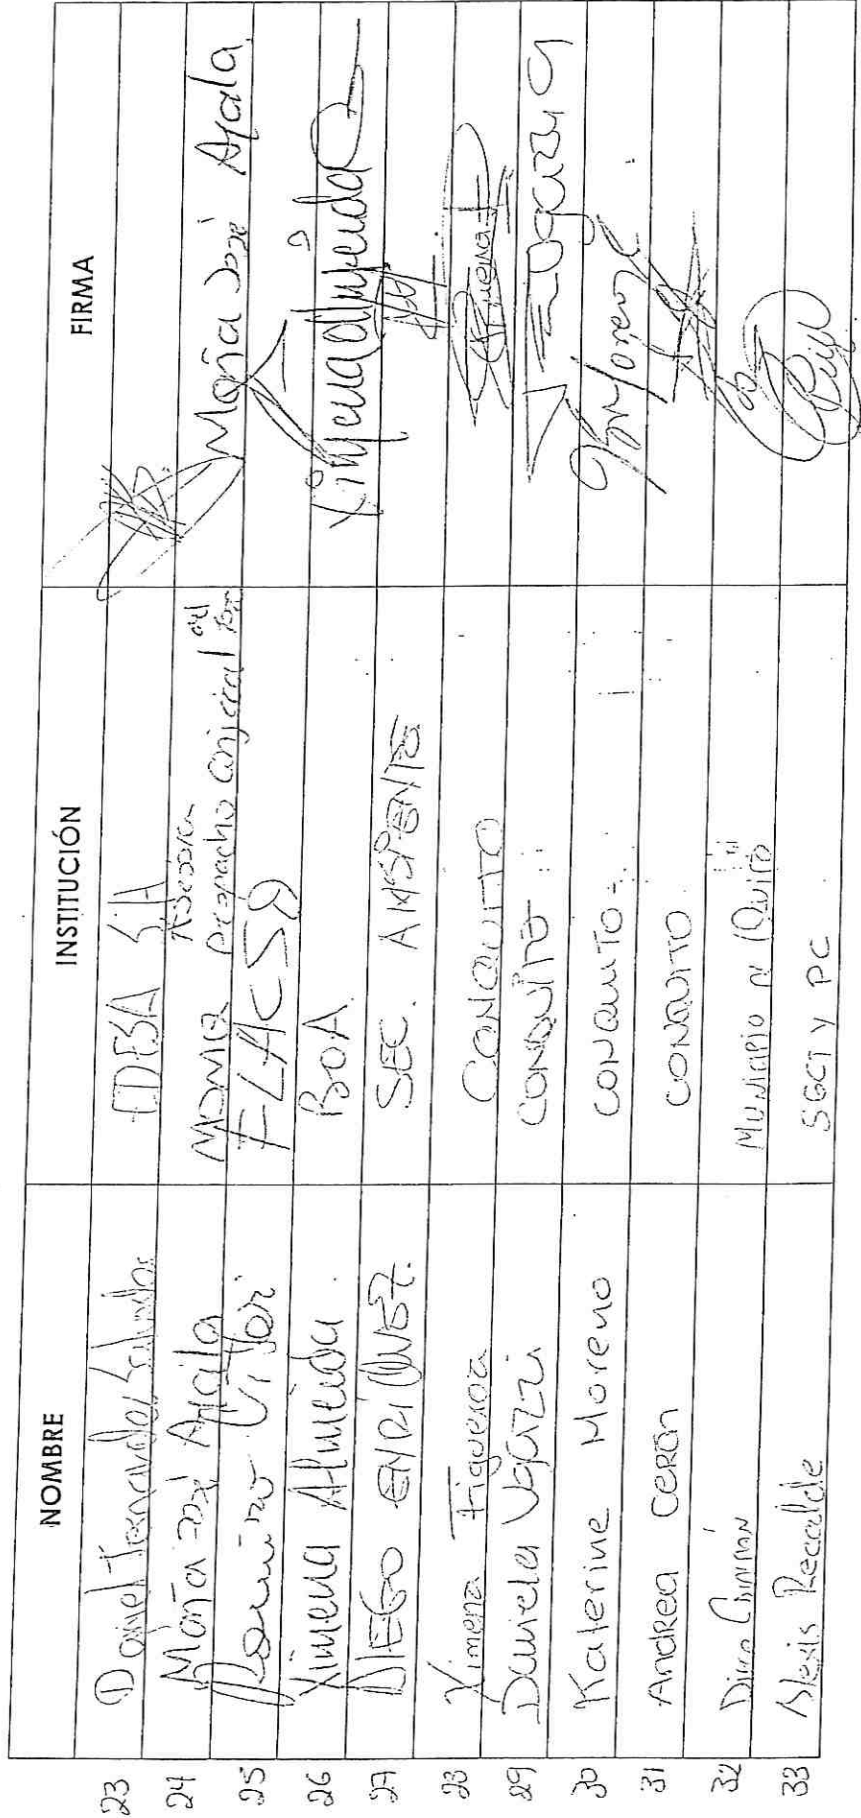 NOMBRE INSTITUCIÓN FIRMA
23 Daniel Fernandez Salvador EDESA S.A
24 María José Ayala Asesora MDMQ Despacho Concejal María José Ayala
25 Ramiro FLACSO
26 Ximena Almeida. BOA. Ximena Almeida
27 DIEGO ENRIQUEZ. SEC. AMBIENTE
28 Ximena Figueroa CONQUITO
29 Daniela Ugazzi CONQUITO D Ugazzi
30 Katerine Moreno CONQUITO KMoreno
31 Andrea Cerón CONQUITO
32 Municipio de Quito
33 Alexis Recalde SGCTYPC